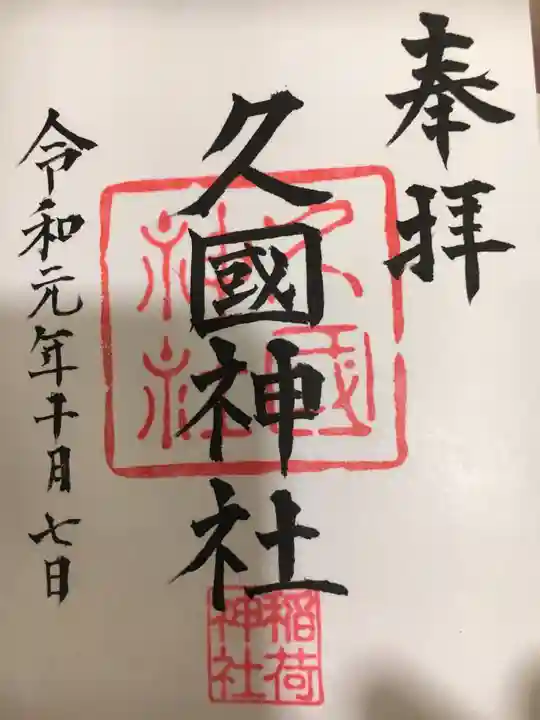 奉拝
久國神社
久國神社
稲荷神社
令和元年十月七日